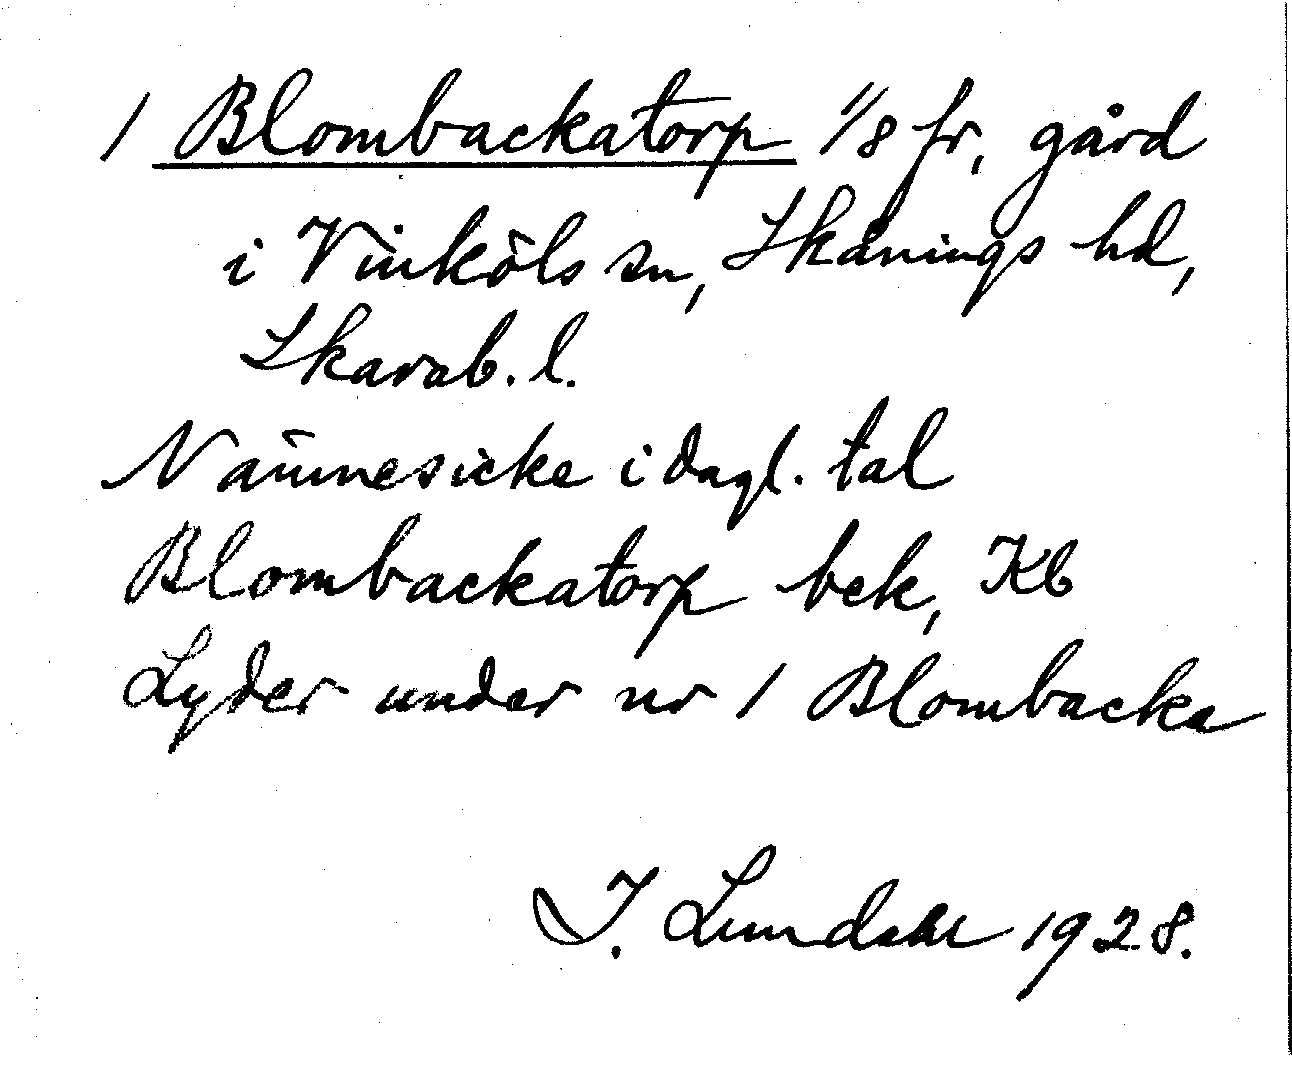 1 Blombackatorp 1/8 fr, gård
i Vinköls sn, Skånings hd,
Skarab. l.
Nämnes icke i dagl. tal
Blombackatorp bek, Kb
Lyder under nr 1 Blombacka
I. Lundahl 1928.